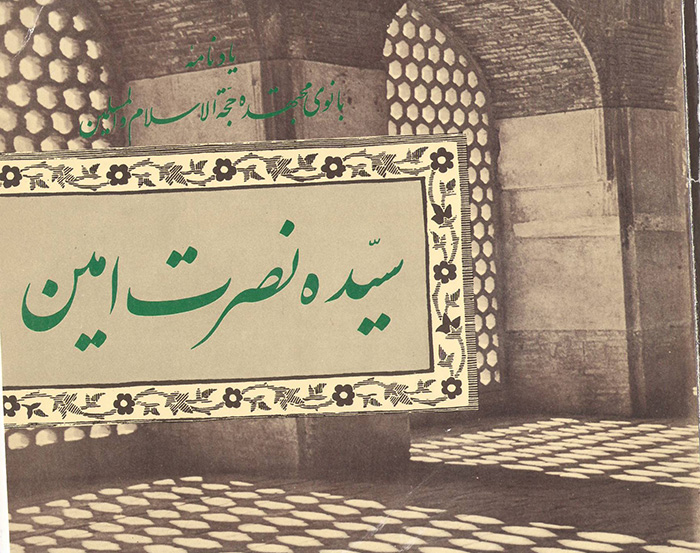 یادنامه
بانوی مجتهده حجة الاسلام والمسلمین
سیّده نصرت امین